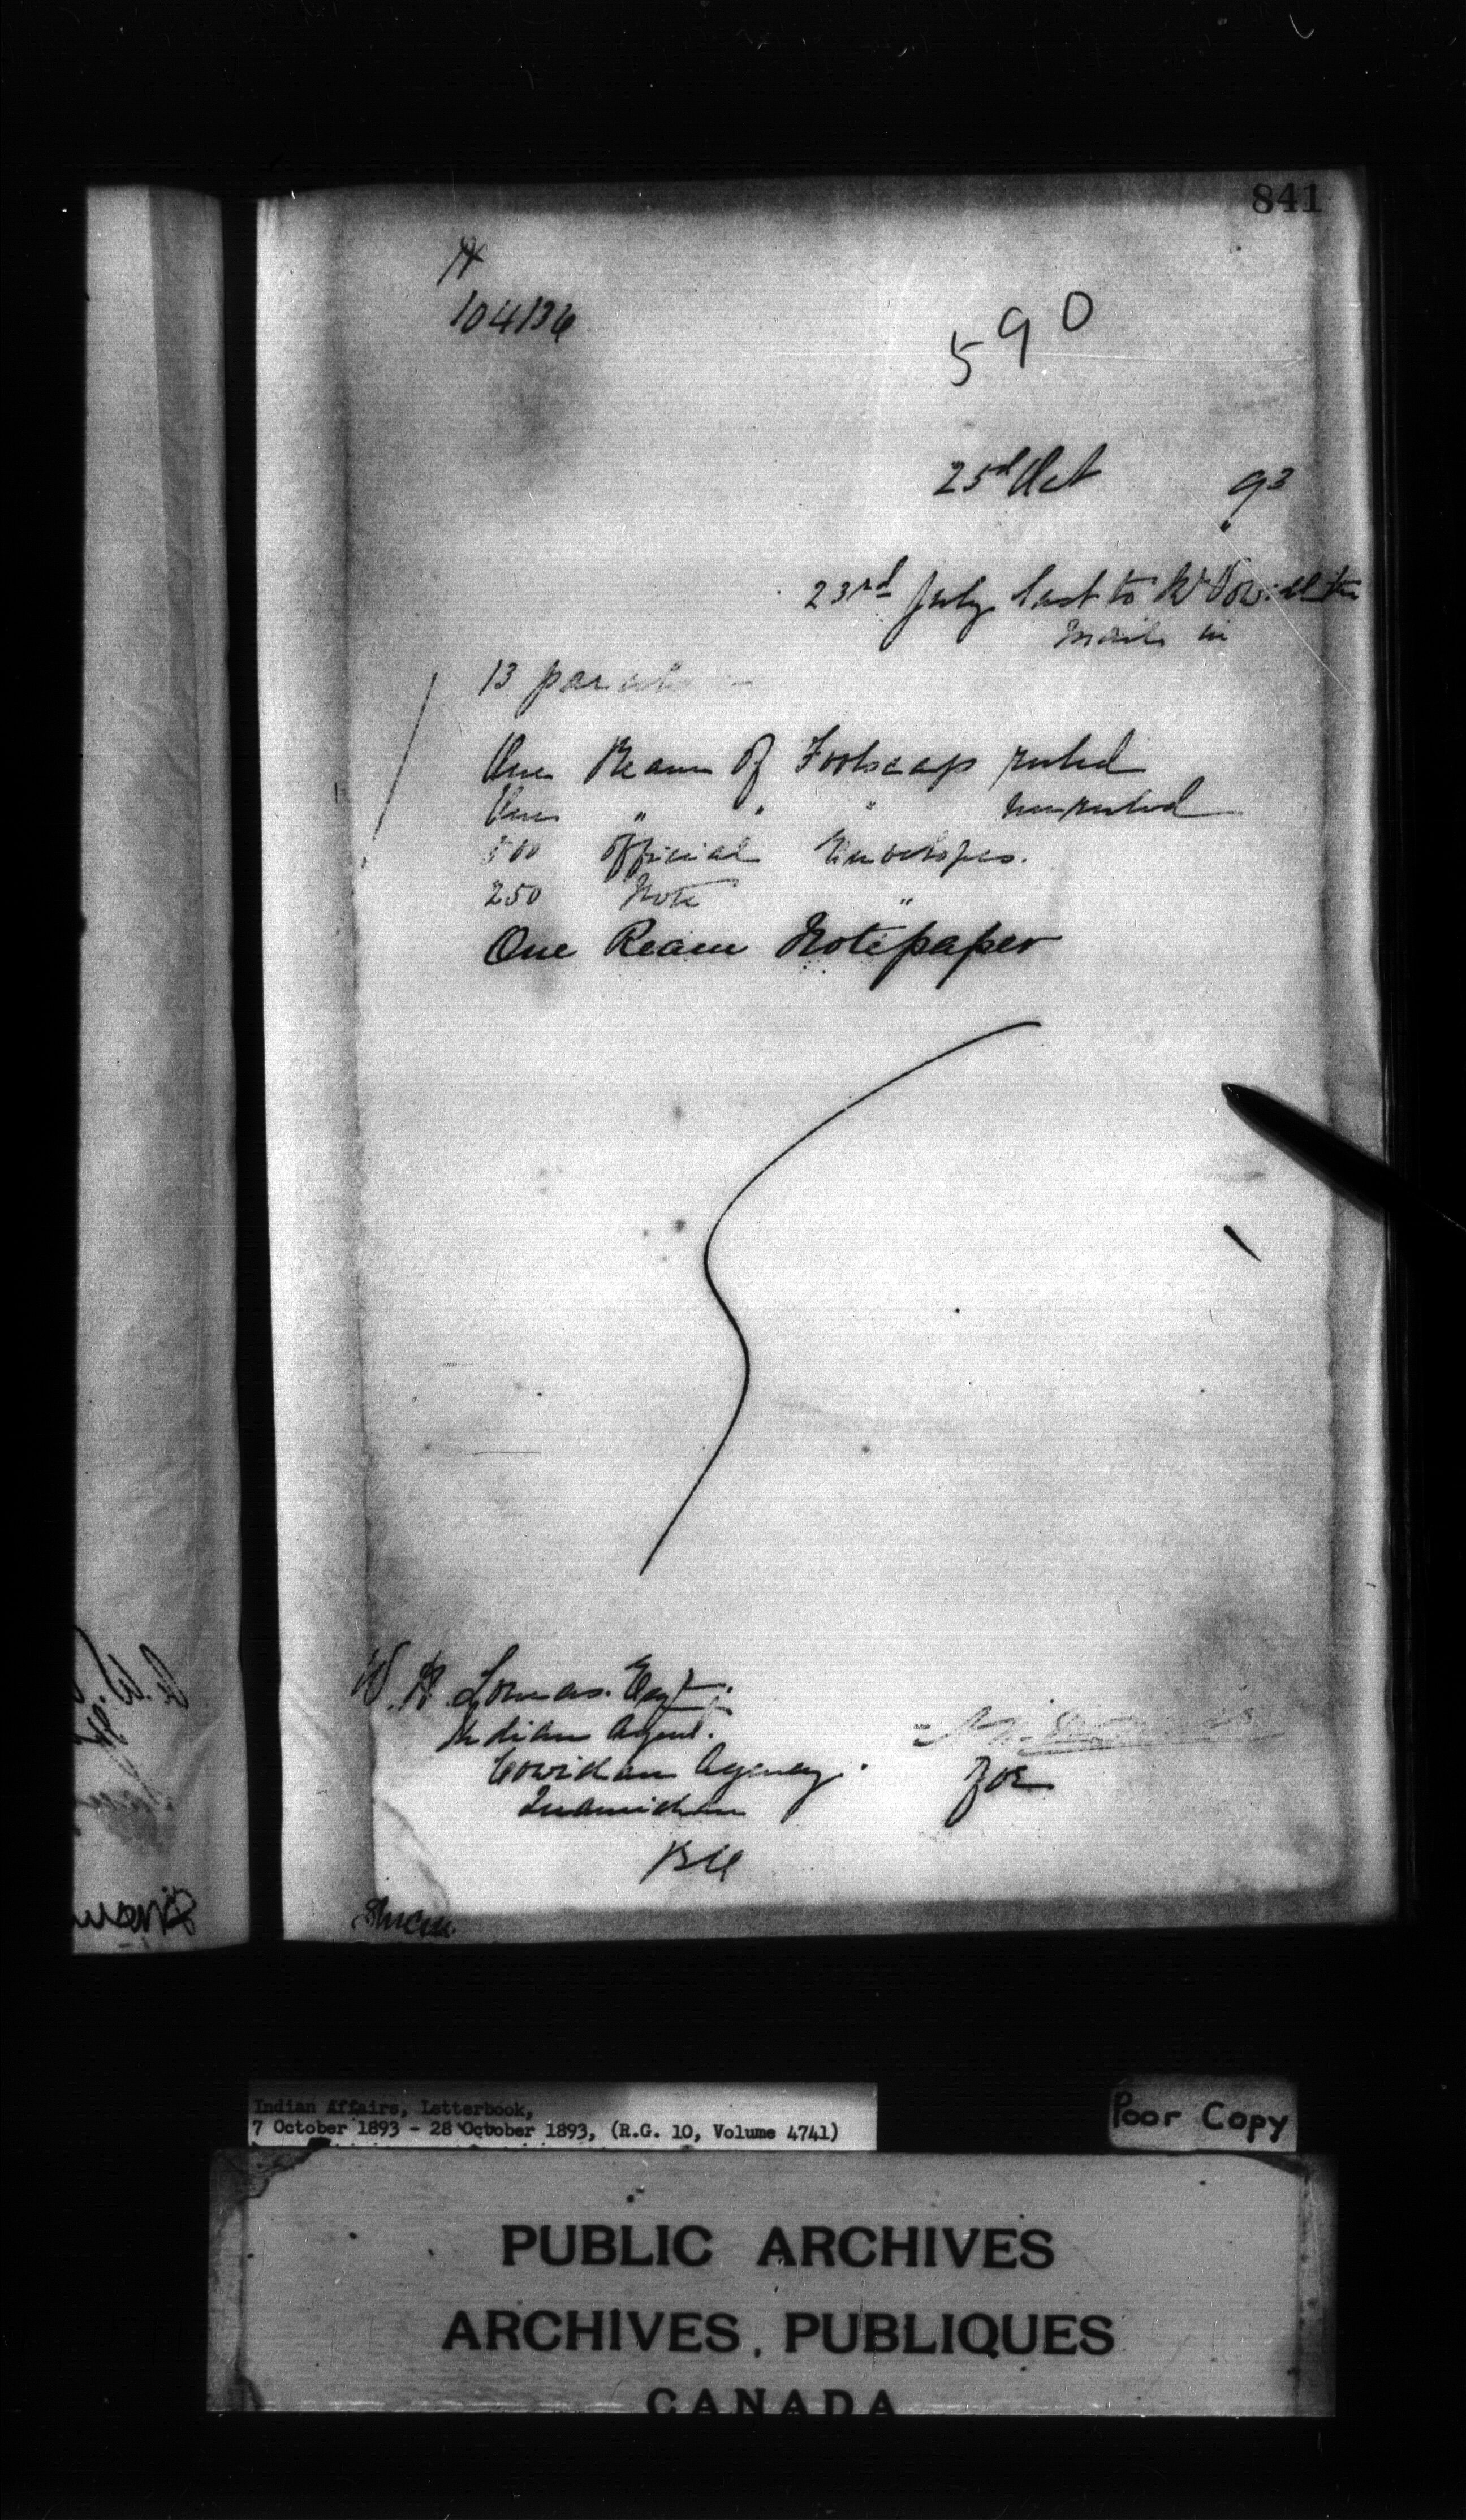 841
H
104136
590
25d Oct 93
23rd July last to Mr Vowell the
mails in
13 parcels
One Ream of Foolscap ruled
One " " " unruled
500 Official Envelopes.
250 Note "
One Ream Notepaper
W. H. Lomas. Esqr.
Indian Agent.
Cowichan Agency.
Quamichan
BC
for
Indian Affairs, Letterbook,
7 October 1893 - 28 October 1893, (R.G. 10, Volume 4741)
Poor Copy
PUBLIC ARCHIVES
ARCHIVES PUBLIQUES
CANADA